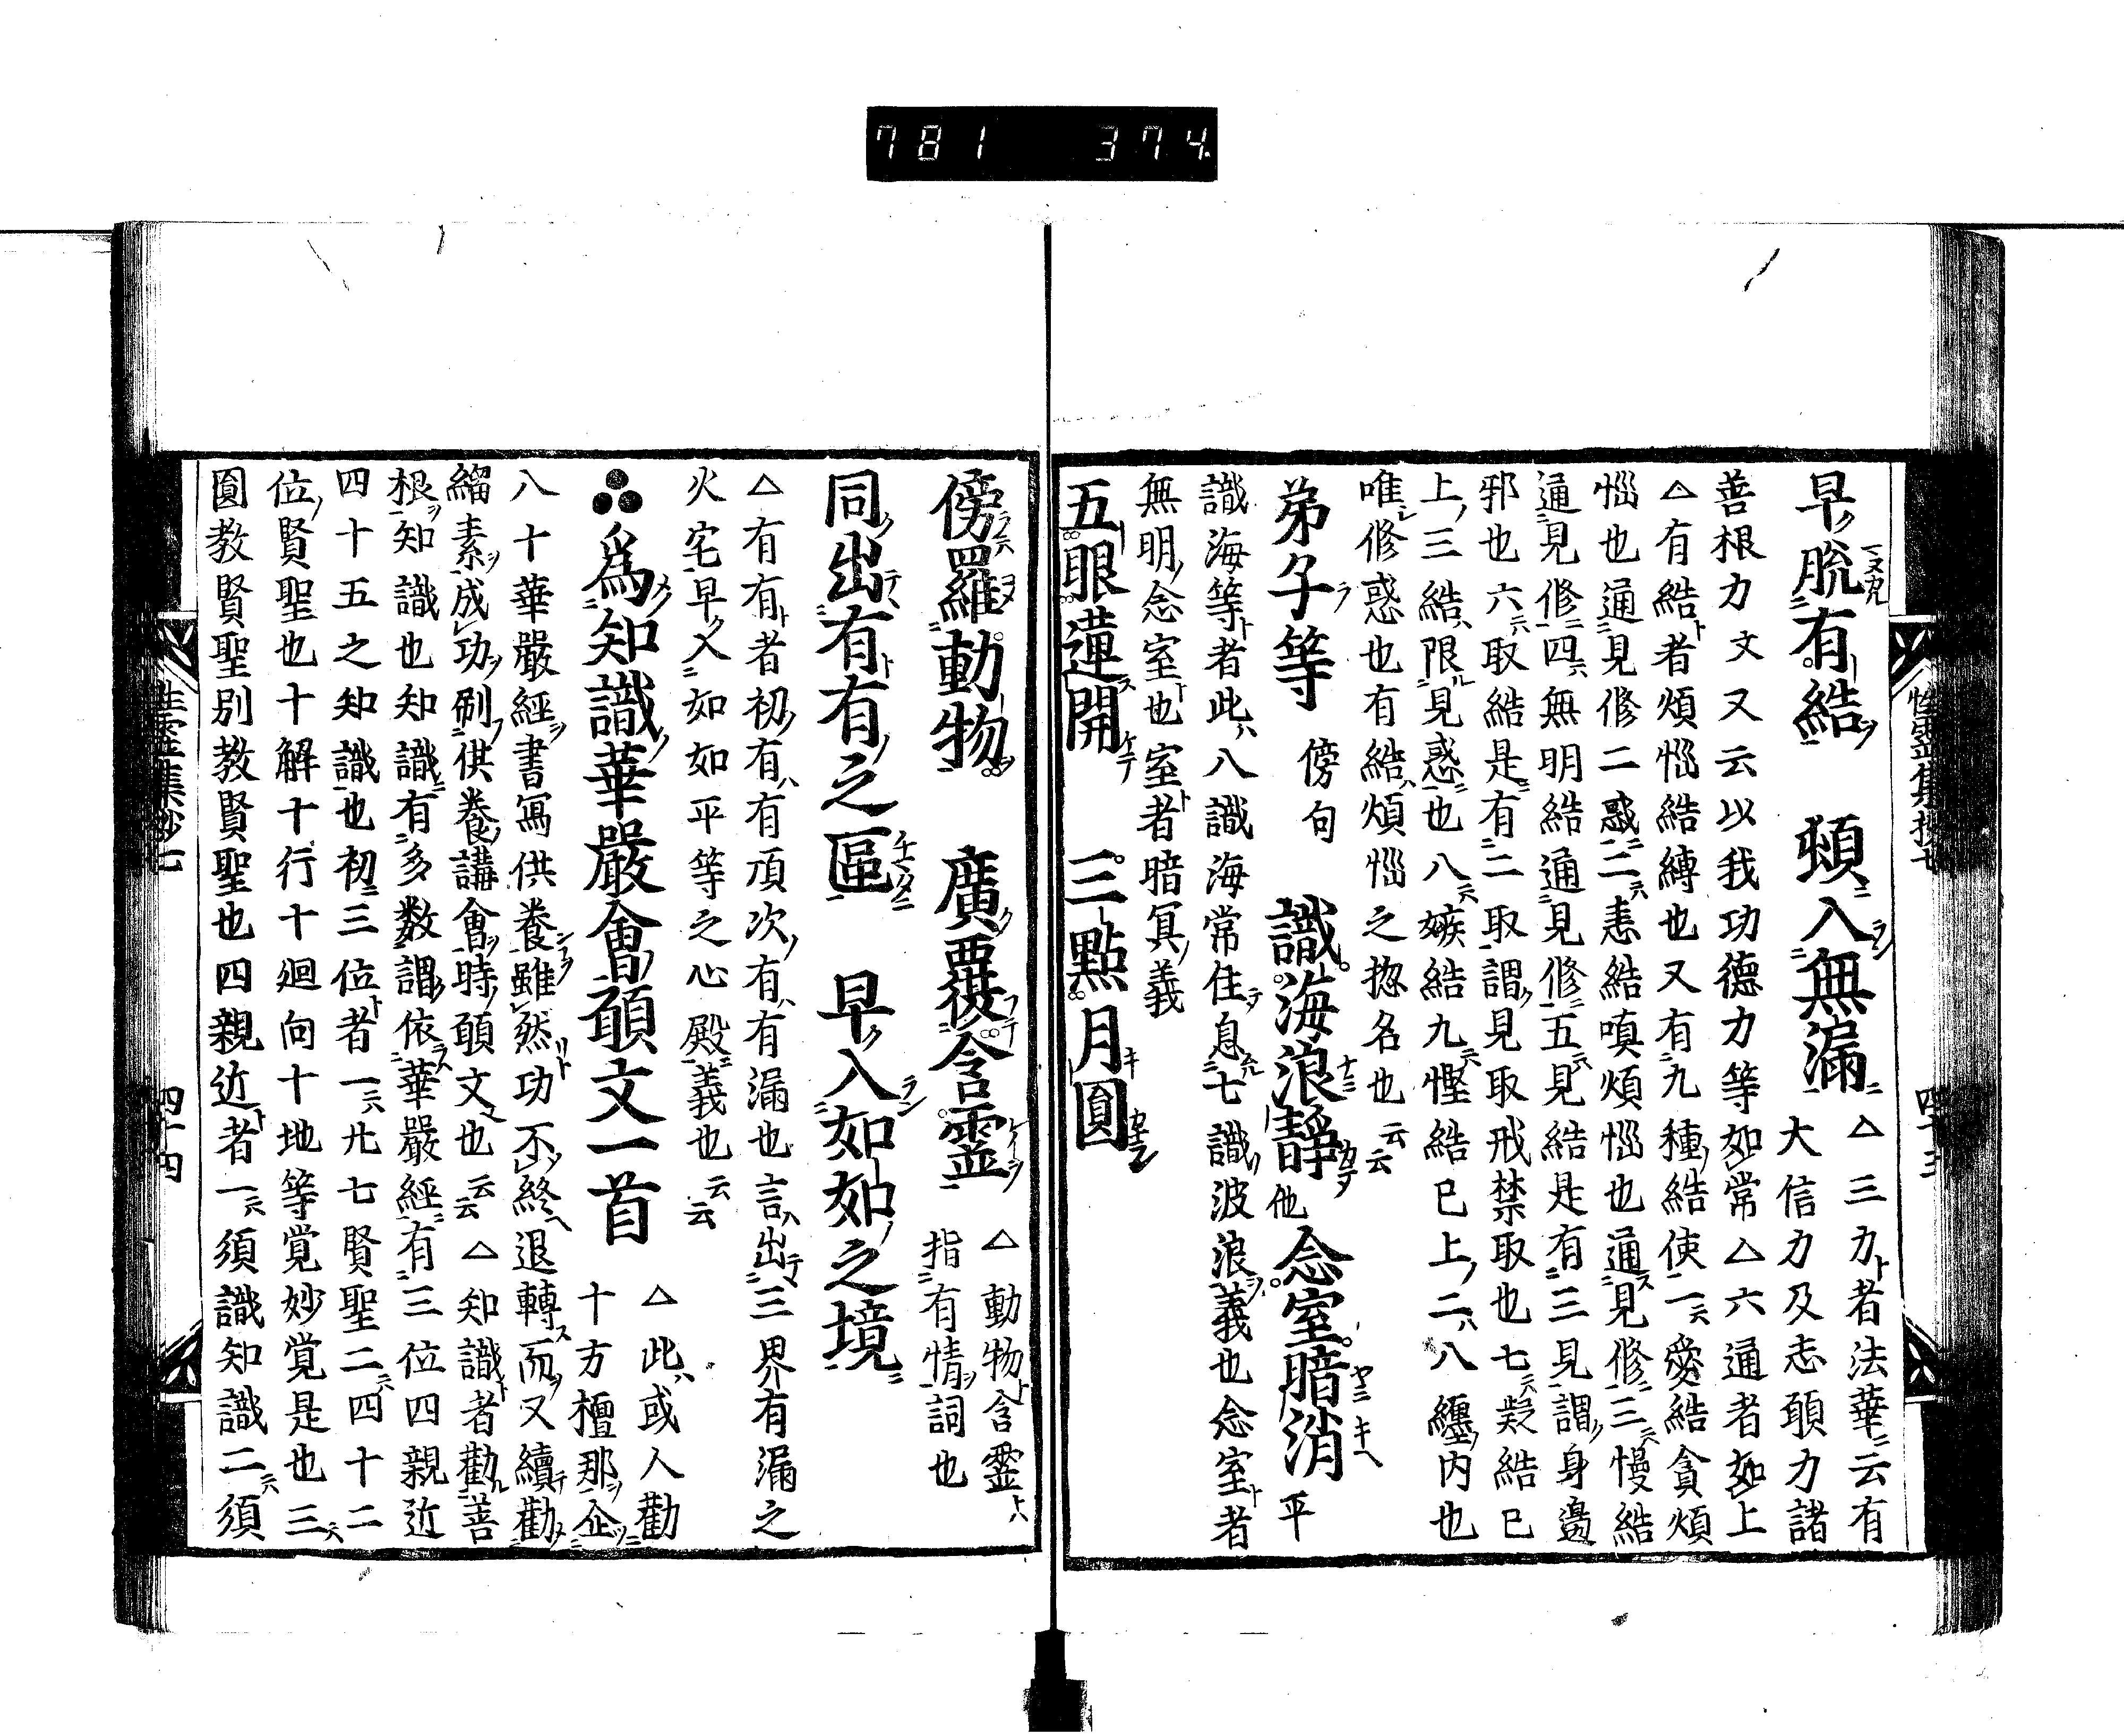 781 374.
早脫有結 頬入無漏
△三力者法華云有
大信力及志願力諸
善根力文又云以我功德力等如常△六通者如上
△有結者煩惱結縛也又有九種結使一愛結貪煩
惱也通見修二惑二恚結嗔煩惱也通見修三慢結
通見修四無明結通見修五見結是有三見謂身邊
邪也六取結是有二取謂見取戒禁取也七疑結已
上三結限見惑也八嫉結九慳結已上二八纏內也
唯修惑也有結煩惱之惣名也云云
弟子等 傍句 識海浪靜他 念室暗消平
識海等者此八識海常住息七識波浪義也念室者
無明念室也室者暗冥義
五眼蓮開 三點月圓
性霊集抄七 四十三
傍羅動物 廣覆含靈
△動物含霊
指有情詞也
同出有有之區 早入如如之境
△有有者初有有頂次有有漏也言出三界有漏之
火宅早入如如平等之心殿義也云云
為知識華嚴會願文一首
△此或人勸
十方檀那企
八十華嚴經書寫供養雖然功不終退轉而又續勸
緇素成功刷供養講會時願文也云云△知識者勸善
根知識也知識有多数謂依華嚴經有三位四親近
四十五之知識也初三位者一廿七賢聖二四十二
位賢聖也十解十行十廻向十地等覚妙覚是也三
圓教賢聖別教賢聖也四親近者一須識知識二須
性霊集抄七 四十四